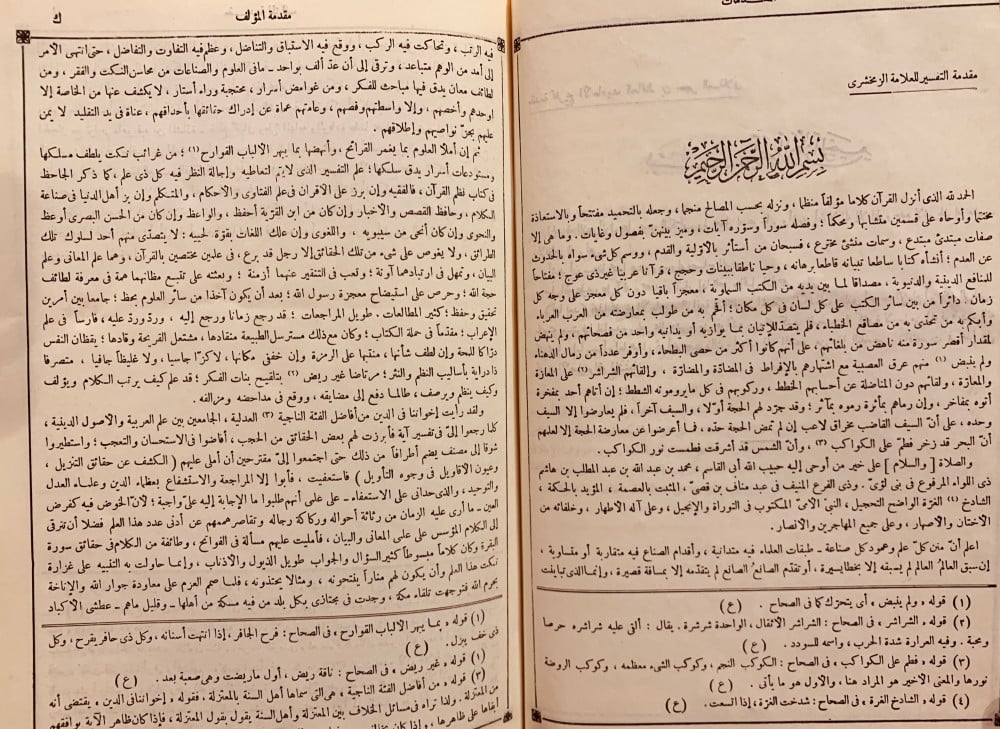 مقدمة التفسير للعلامة الزمخشرى
بسم الله الرحمن الرحيم
الحمد لله الذى أنزل القرآن كلاما مؤلفاً منظما ، ونزله بحسب المصالح منجما ، وجعله بالتحميد مفتتحاً وبالاستعاذة
مختتما وأوحاه على قسمين متشابها ومحكما ؛ وفصله سوراً وسوّره آيات ، وميز بينهنّ بفصول وغايات . وما هى إلا
صفات مبتدئ مبتدع ، وسمات منشئ مخترع ، فسبحان من استأثر بالأوّلية والقدم ، ووسم كل شىء سواه بالحدوث
عن العدم ؛ أنشأه كتابا ساطعا تبيانه قاطعا برهانه ، وحيا ناطقا ببينات وحجج ، قرآنا عربيا غير ذى عوج ؛ مفتاحاً
للمنافع الدينية والدنيوية ، مصداقا لما بين يديه من الكتب السماوية ، معجزاً باقيا دون كل معجز على وجه كل
زمان ، دائراً من بين سائر الكتب على كل لسان فى كل مكان ؛ أفحم به من طولب بمعارضته من العرب العرباء
وأبكم به من تحدّى به من مصاقع الخطباء ، فلم يتصدّ للإتيان بما يوازيه أو يدانيه واحد من فصحائهم ، ولم ينهض
لمقدار أقصر سورة منه ناهض من بلغائهم ، على أنهم كانوا أكثر من حصى البطحاء ، وأوفر عدداً من رمال الدهناء
ولم ينبض (١) منهم عرق العصبية مع اشتهارهم بالإفراط فى المضادّة والمضارّة ، وإلقائهم الشراشر (٢) على المعازة
والمعارّة ، ولقائهم دون المناضلة عن أحسابهم الخطط ، وركوبهم فى كل ما يرومونه الشطط ؛ إن أتاهم أحد بمفخرة
أتوه بمفاخر ، وإن رماهم بمأثرة رموه بمآثر ؛ وقد جرّد لهم الحجة أوّلا ، والسيف آخراً ، فلم يعارضوا إلا السيف
وحده ، على أنّ السيف القاضب مخراق لاعب إن لم تمض الحجة حدّه ، فما أعرضوا عن معارضة الحجة إلا لعلمهم
أنّ البحر قد زخر فطمّ على الكواكب (٣) ، وأنّ الشمس قد أشرقت فطمست نور الكواكب .
والصلاة [ والسلام ] على خير من أوحى إليه حبيب الله أبى القاسم ، محمد بن عبد الله بن عبد المطلب بن هاشم
ذى اللواء المرفوع فى بنى لؤىّ . وذى الفرع المنيف فى عبد مناف بن قصىّ ، المثبت بالعصمة ، المؤيد بالحكمة ،
الشادخ (٤) الغرّة الواضح التحجيل ، النبى الامىّ المكتوب فى التوراة والإنجيل ، وعلى آله الأطهار ، وخلفائه من
الأختان والأصهار ، وعلى جميع المهاجرين والأنصار .
اعلم أنّ متن كلّ علم وعمود كل صناعة ـ طبقات العلماء فيه متدانية ، وأقدام الصناع فيه متقاربة أو متساوية ،
إن سبق العالمُ العالم لم يسبقه إلا بخطا يسيرة ، أو تقدم الصانعُ الصانع لم يتقدّمه إلا بمسافة قصيرة ، وإنما الذى تباينت
(١) قوله ، ولم ينبض ، أى يتحرّك كما فى الصحاح . (ع)
(٢) قوله ، الشراشر ، فى الصحاح : الشراشر الأثقال ، الواحدة شرشرة . يقال : ألقى عليه شراشره حرصا
ومحبة . وفيه العرارة شدة الحرب ، واسمه للسودد . (ع)
(٣) قوله ، فطم على الكواكب ، فى الصحاح : الكوكب النجم ، وكوكب الشىء معظمه ، وكوكب الروضة
نورها والمعنى الأخير هو المراد هنا ، والأول هو ما يأتى . (ع)
(٤) قوله ، الشادخ الغرة ، فى الصحاح : شدخت الغرّة ، إذا اتسعت . (ع)
مقدمة المؤلف
ك
فيه الرتب ، وتحاكت فيه الركب ، ووقع فيه الاستباق والتناضل ، وعظم فيه التفاوت والتفاضل ، حتى انتهى الأمر
إلى أمد من الوهم متباعد ، وترقى إلى أن عدّ ألف بواحد ـ ما فى العلوم والصناعات من محاسن النكت والفقر ، ومن
لطائف معان يدق فيها مباحث للفكر ، ومن غوامض أسرار ، محتجبة وراء أستار ، لا يكشف عنها من الخاصة إلا
أوحدهم وأخصهم ، وإلا واسطتهم وفصهم ، وعامتهم عماة عن إدراك حقائقها بأحداقهم ، عناة فى يد التقليد لا يمن
عليهم بجزّ نواصيهم وإطلاقهم .
ثم إن أملأ العلوم بما يغمر القرائح ، وأنهضها بما يبهر الألباب القوارح (١) ؛ من غرائب نكت يلطف مسلكها
ومستودعات أسرار يدق سلكها ؛ علم التفسير الذى لا يتم لتعاطيه وإجالة النظر فيه كل ذى علم ، كما ذكر الجاحظ
فى كتاب نظم القرآن ، فالفقيه وإن برز على الأقران فى علم الفتاوى والأحكام ، والمتكلم وإن بز أهل الدنيا فى صناعة
الكلام ، وحافظ القصص والأخبار وإن كان من ابن القرّية أحفظ ، والواعظ وإن كان من الحسن البصرى أوعظ
والنحوى وإن كان أنحى من سيبويه ، واللغوى وإن علك اللغات بقوّة لحييه : لا يتصدّى منهم أحد لسلوك تلك
الطرائق ، ولا يغوص على شىء من تلك الحقائق إلا رجل قد برع ، فى علمين مختصين بالقرآن ، وهما علم المعانى وعلم
البيان ، وتمهل فى ارتيادهما آونة ؛ وتعب فى التنقير عنهما أزمنة ؛ وبعثته على تتبع مظانهما همة فى معرفة لطائف
حجة الله ؛ وحرص على استيضاح معجزة رسول الله ؛ بعد أن يكون آخذا من سائر العلوم بحظ ؛ جامعا بين أمرين
تحقيق وحفظ ؛ كثير المطالعات . طويل المراجعات ؛ قد رجع زمانا ورجع إليه ، وردّ وردّ عليه ، فارساً فى علم
الإعراب ؛ مقدّماً فى حملة الكتاب ؛ وكان مع ذلك مسترسل الطبيعة منقادها ، مشتعل القريحة وقادها ؛ يقظان النفس
درّاكا للمحة وإن لطف شأنها ، متنبها على الرمزة وإن خفى مكانها ، لا كزّا جاسيا ، ولا غليظاً جافيا ، متصرفا
ذا دراية بأساليب النظم والنثر ؛ مرتاضا غير ريض (٢) بتلقيح بنات الفكر ؛ قد علم كيف يرتب الكلام ويؤلف
وكيف ينظم ويرصف ، طالما دفع إلى مضايقه ، ووقع فى مداحضه ومزالقه .
ولقد رأيت إخواننا فى الدين من أفاضل الفئة الناجية (٣) العدلية ، الجامعين بين علم العربية والأصول الدينية ،
كلما رجعوا إلىّ فى تفسير آية فأبرزت لهم بعض الحقائق من الحجب ، أفاضوا فى الاستحسان والتعجب ؛ واستطيروا
شوقا إلى مصنف يضم أطرافاً من ذلك حتى اجتمعوا إلىّ مقترحين أن أملى عليهم ( الكشف عن حقائق التنزيل ،
وعيون الأقاويل فى وجوه التأويل ) فاستعفيت ، فأبوا إلا المراجعة والاستشفاع بعظماء الدين وعلماء العدل
والتوحيد ، والذى حدانى على الاستعفاء ـ على علمى أنهم طلبوا ما الإجابة إليه علىّ واجبة ؛ لأنّ الخوض فيه كفرض
العين ـ ما أرى عليه الزمان من رثاثة أحواله وركاكة رجاله وتقاصر هممهم عن أدنى عدد هذا العلم فضلا أن تترقى
إلى الكلام المؤسس على علمى المعانى والبيان ، فأمليت عليهم مسألة فى الفواتح ، وطائفة من الكلام فى حقائق سورة
البقرة وكان كلاماً مبسوطاً كثير السؤال والجواب طويل الذيول والأذناب ، وإنما حاولت به التنبيه على غزارة
نكت هذا العلم وأن يكون لهم مناراً ينتحونه ، ومثالا يحتذونه ، فلما صمم العزم على معاودة جوار الله والإناخة
بحرم الله فتوجهت تلقاء مكة ، وجدت فى مجتازى بكل بلد من فيه مسكة من أهلها ـ وقليل ماهم ـ عطشى الأكباد
(١) قوله ، بما يبهر الألباب القوارح ، فى الصحاح : قرح الحافر ، إذا انتهت أسنانه ، وكل ذى حافر يقرح ، وكل
ذى خف يبزل . (ع)
(١) قوله ، غير ريض ، فى الصحاح : ناقة ريض ، أول ما ريضت وهى صعبة بعد . (ع)
(٣) قوله ، من أفاضل الفئة الناجية ، هى التى سماها أهل السنة بالمعتزلة . فقوله ، إخواننا فى الدين ، يقتضى أنه
من المعتزلة . ولذا تراه فى مسائل الخلاف بين المعتزلة وأهل السنة يقول بقول المعتزلة ، فإذا كان ظاهر الآية يوافقهم
أبقاها على ظاهرها ، وإذا كان